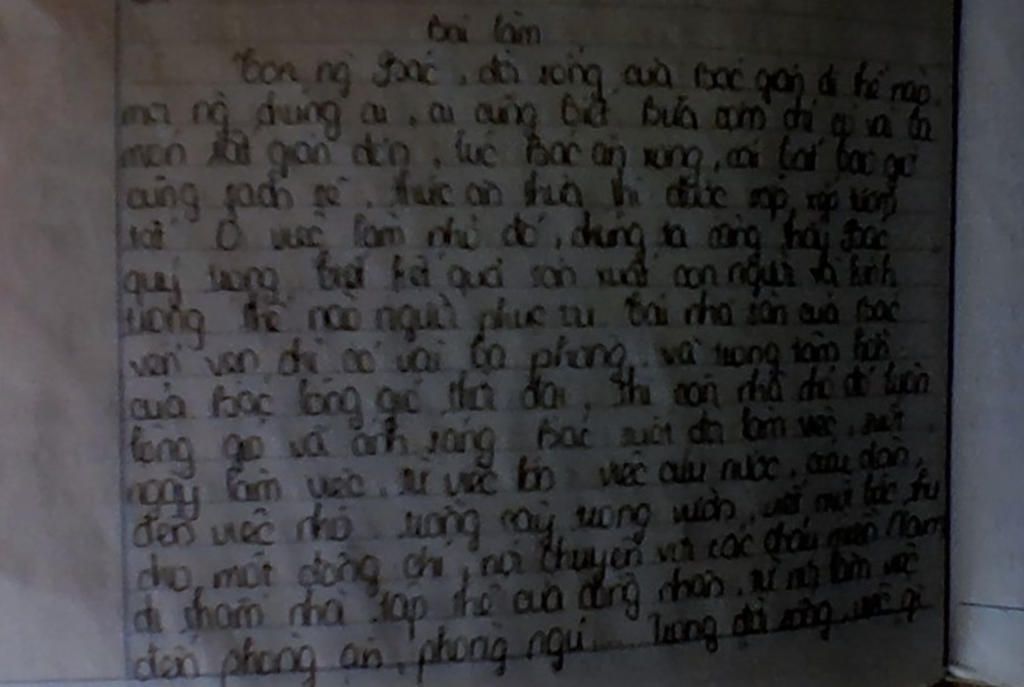 Bài làm
Con ng Bác, đời sống của Bác giản dị thế nào,
mọi ng chúng ta, ai cũng biết Bữa cơm chỉ có vài ba
món rất giản đơn, lúc Bác ăn xong, cái bát bao giờ
cũng sạch sẽ, thức ăn thừa thì được sắp xếp tươm
tất Ở việc làm nhỏ đó, chúng ta càng thấy Bác
quý trọng kết quả sản xuất con người và kính
trọng thế nào người phục vụ nhà sàn của Bác
vẻn vẹn chỉ có vài ba phòng, và trong tâm hồn
của Bác lộng gió thời đại, thì nhà đó luôn
lộng gió và ánh sáng Bác suốt đời làm việc, suốt
ngày làm việc, từ việc lớn việc cứu nước, cứu dân,
đến việc nhỏ trồng cây trong vườn, viết một bức thư
cho một đồng chí, nói chuyện với các cháu miền Nam
đi thăm nhà tập thể của công nhân, từ nơi làm việc
đến phòng ăn, phòng ngủ... Trong đời sống, việc gì